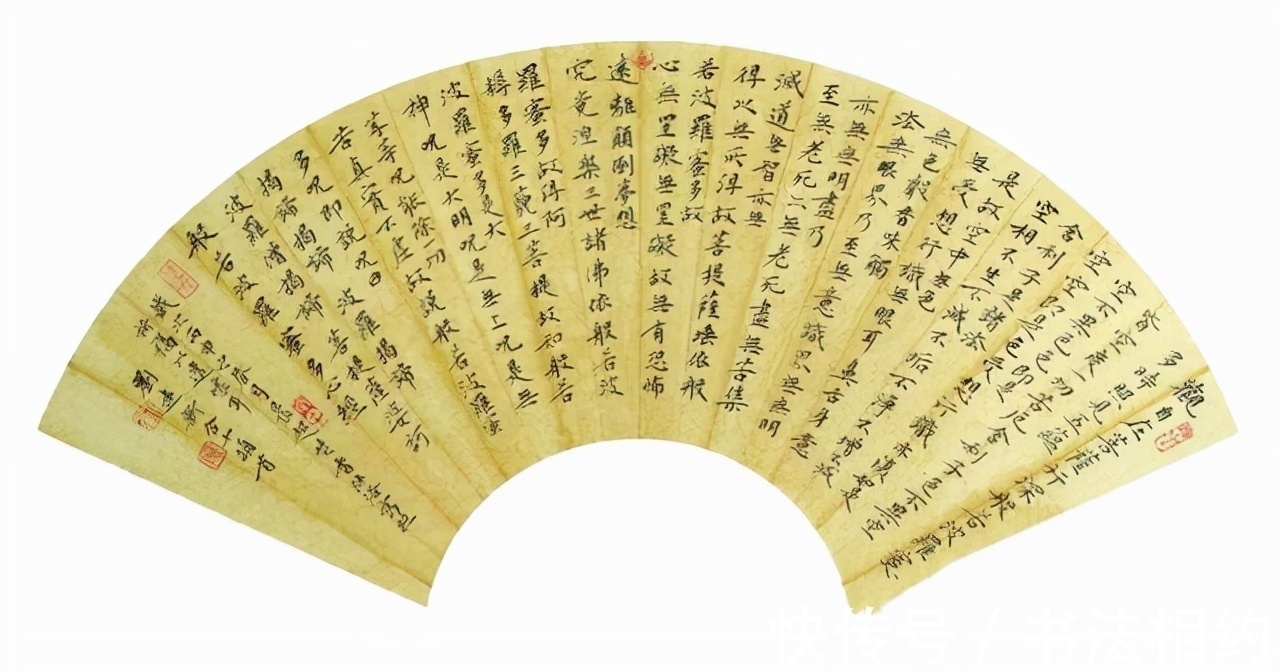 觀自在菩薩行深般若波羅蜜
多時照見五蘊
皆空度一切苦厄舍利子色不異空
空不異色色即是
空空即是色受想行識亦復如是
舍利子是諸法
空相不生不滅不垢不淨不增不減
是故空中無色
無受想行識無眼耳鼻舌身意
無色聲香味觸
法無眼界乃至無意識界無無明
亦無無明盡乃
至無老死亦無老死盡無苦集
滅道無智亦無
得以無所得故菩提薩埵依般
若波羅蜜多故
心無罣礙無罣礙故無有恐怖
遠離顛倒夢想
究竟涅槃三世諸佛依般若波
羅蜜多故得阿
耨多羅三藐三菩提故知般若
波羅蜜多是大
神咒是大明咒是無上咒是無
等等咒能除一切
苦真實不虛故說般若波羅蜜
多咒即說咒曰
揭諦揭諦波羅揭諦
波羅僧揭諦菩提薩婆訶
般若波羅蜜多心經
歲次丙申之春月
祈福
快传号 / 书法相约